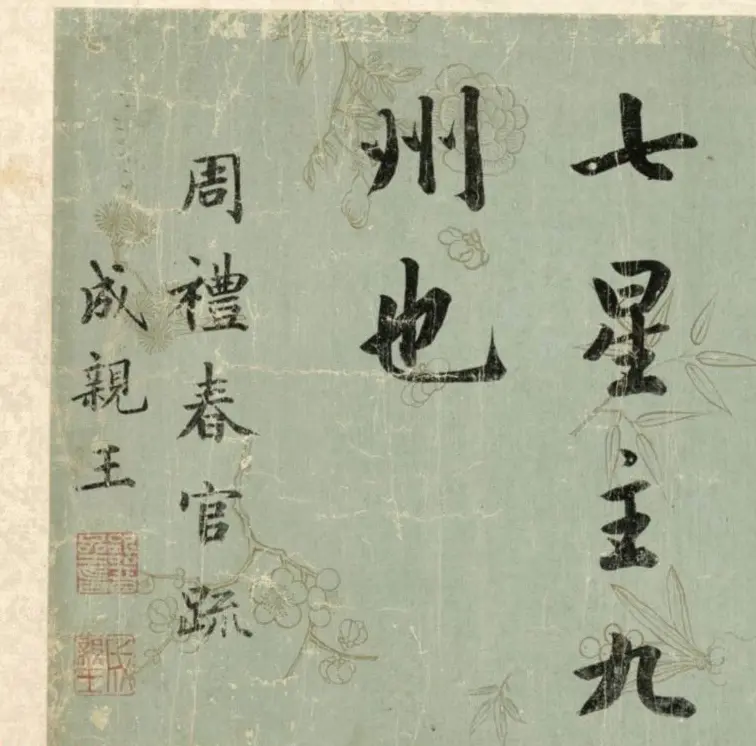 七星主九
州也
周禮春官疏
成親王